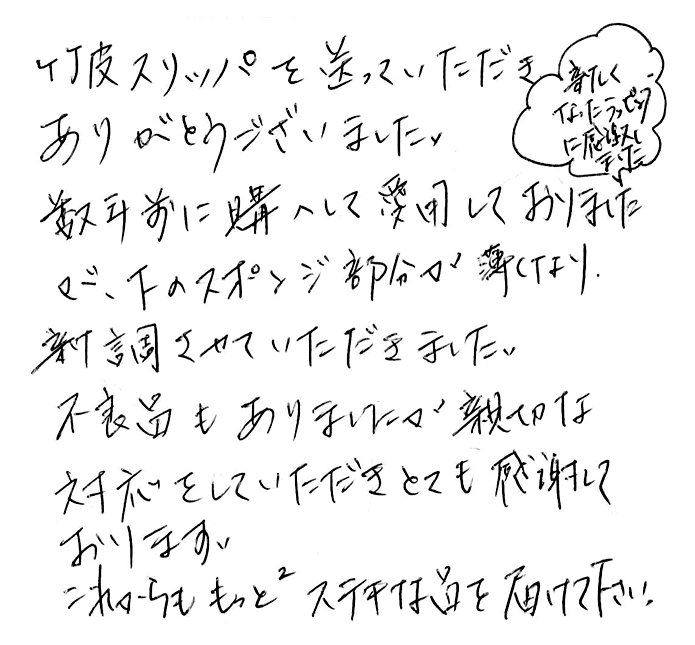 竹皮スリッパを送っていただき
ありがとうございました。
数年前に購入して愛用しておりました
が、下のスポンジ部分が薄くなり、
新調させていただきました。
不良品もありましたが親切な
対応をしていただきとても感謝して
おります。
これからももっと² ステキな品を届けて下さい。
新しく
なったラッピング
に感激し
ました